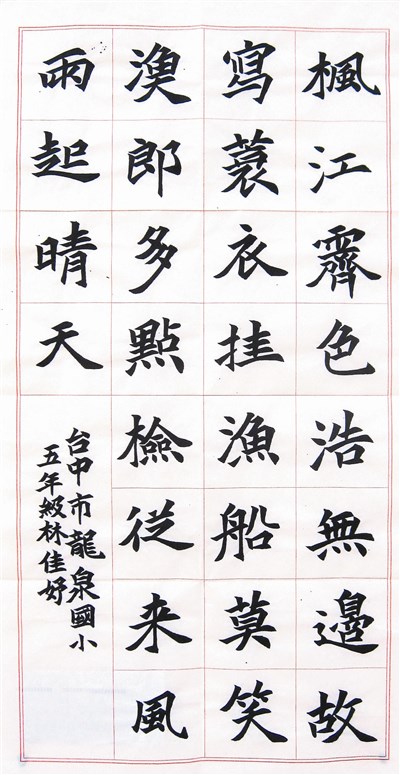 楓江霽色浩無邊故
寫蓑衣挂漁船莫笑
漁郎多點檢從来風
雨起晴天
台中市龍泉國小
五年級林佳妤